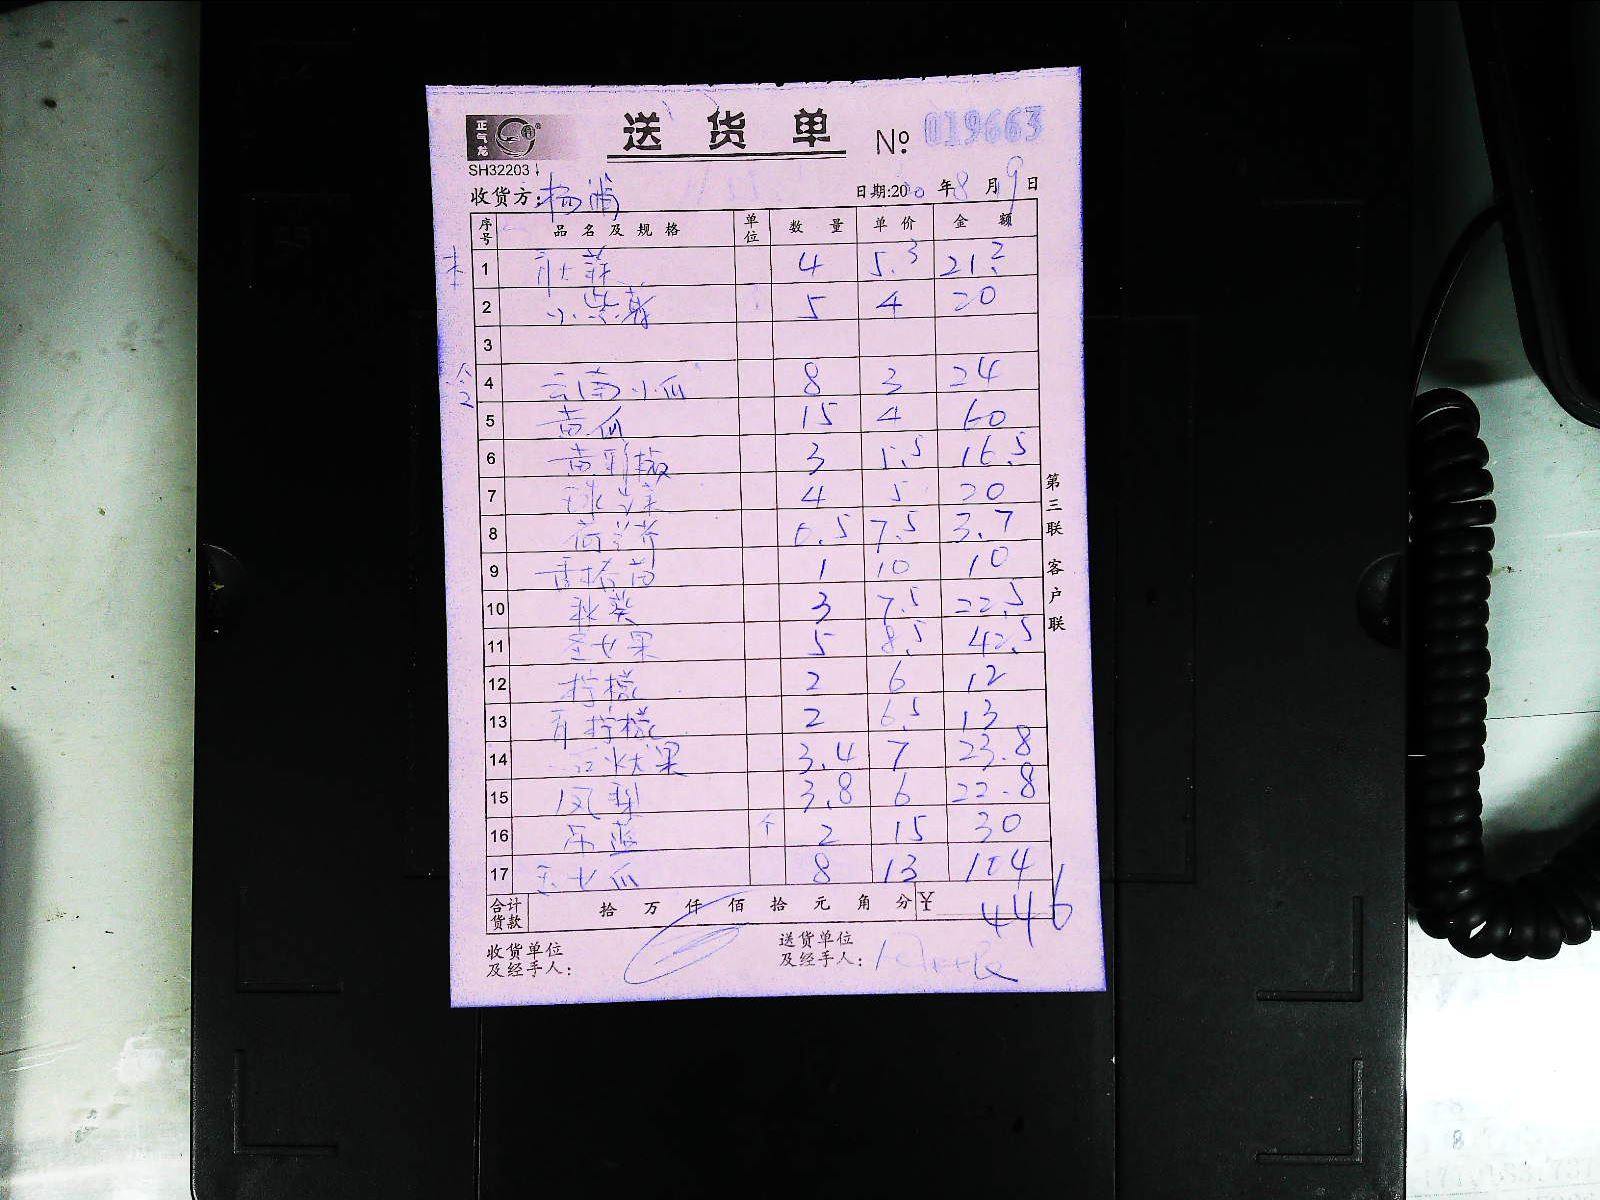 正气龙
送货单 № 019663
SH32203
收货方:杨浦 日期:20 年8月9日
序号 品名及规格 单位 数量 单价 金额
1 4 5.3 21.2
2 小 5 4 20
3
4 云南小瓜 8 3 24
5 黄瓜 15 4 60
6 黄彩椒 3 5.5 16.5
7 球 4 5 20
8 0.5 7.5 3.7
9 1 10 10
10 秋葵 3 7.5 22.5
11 圣女果 5 8.5 42.5
12 柠檬 2 6 12
13 青柠檬 2 6.5 13
14 火果 3.4 7 23.8
15 凤梨 3.8 6 22.8
16 吊蓝 个 2 15 30
17 玉女瓜 8 13 104
合计货款 拾 万 仟 佰 拾 元 角 分 ¥ 446
收货单位及经手人: 送货单位及经手人:
第三联 客户联